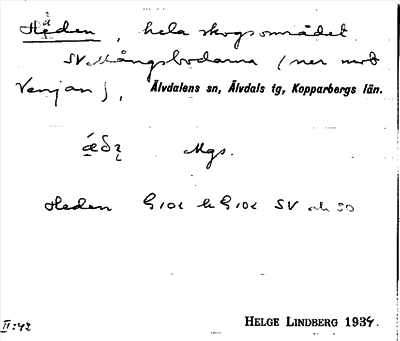 Heden, hela skogsområdet
SV Mångsbodarna (ner mot
Venjan), Älvdalens sn, Älvdals tg, Kopparbergs län.
Mgs.
Heden G10c h G10d SV och SO
II:42
HELGE LINDBERG 1934.